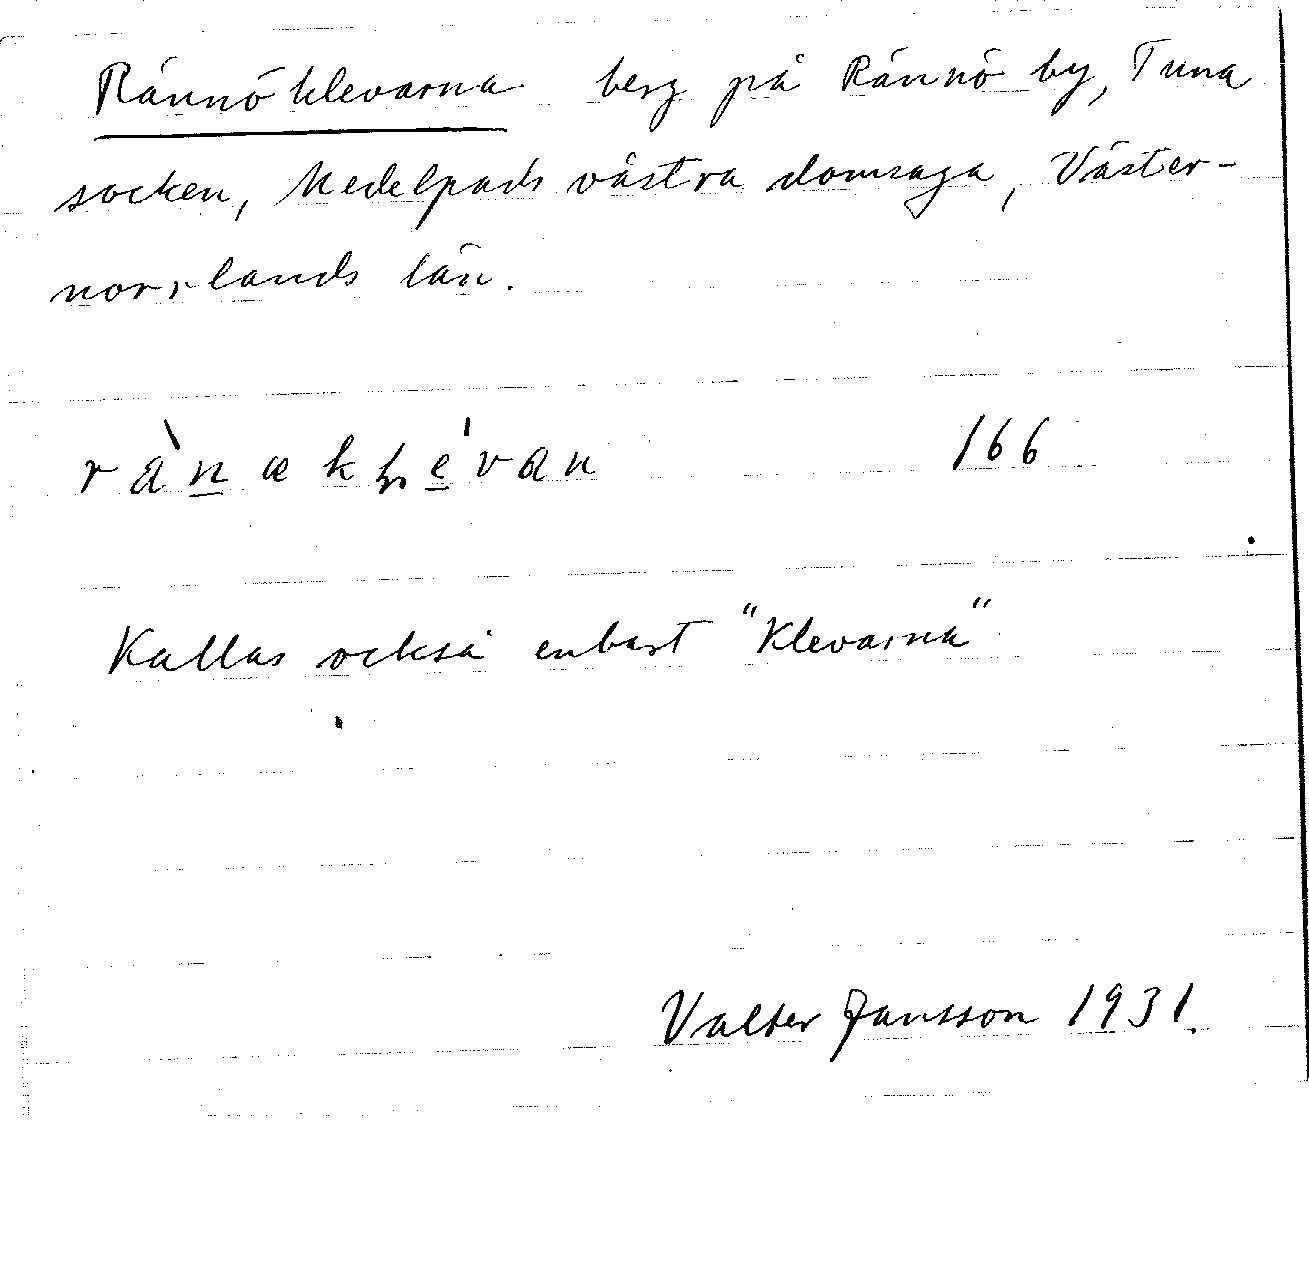 Rännöklevarna berg på Rännö by, Tuna
socken, Medelpads västra domsaga, Väster-
norrlands län.
166
Kallas också enbart "Klevarna"
Valter Jansson 1931.